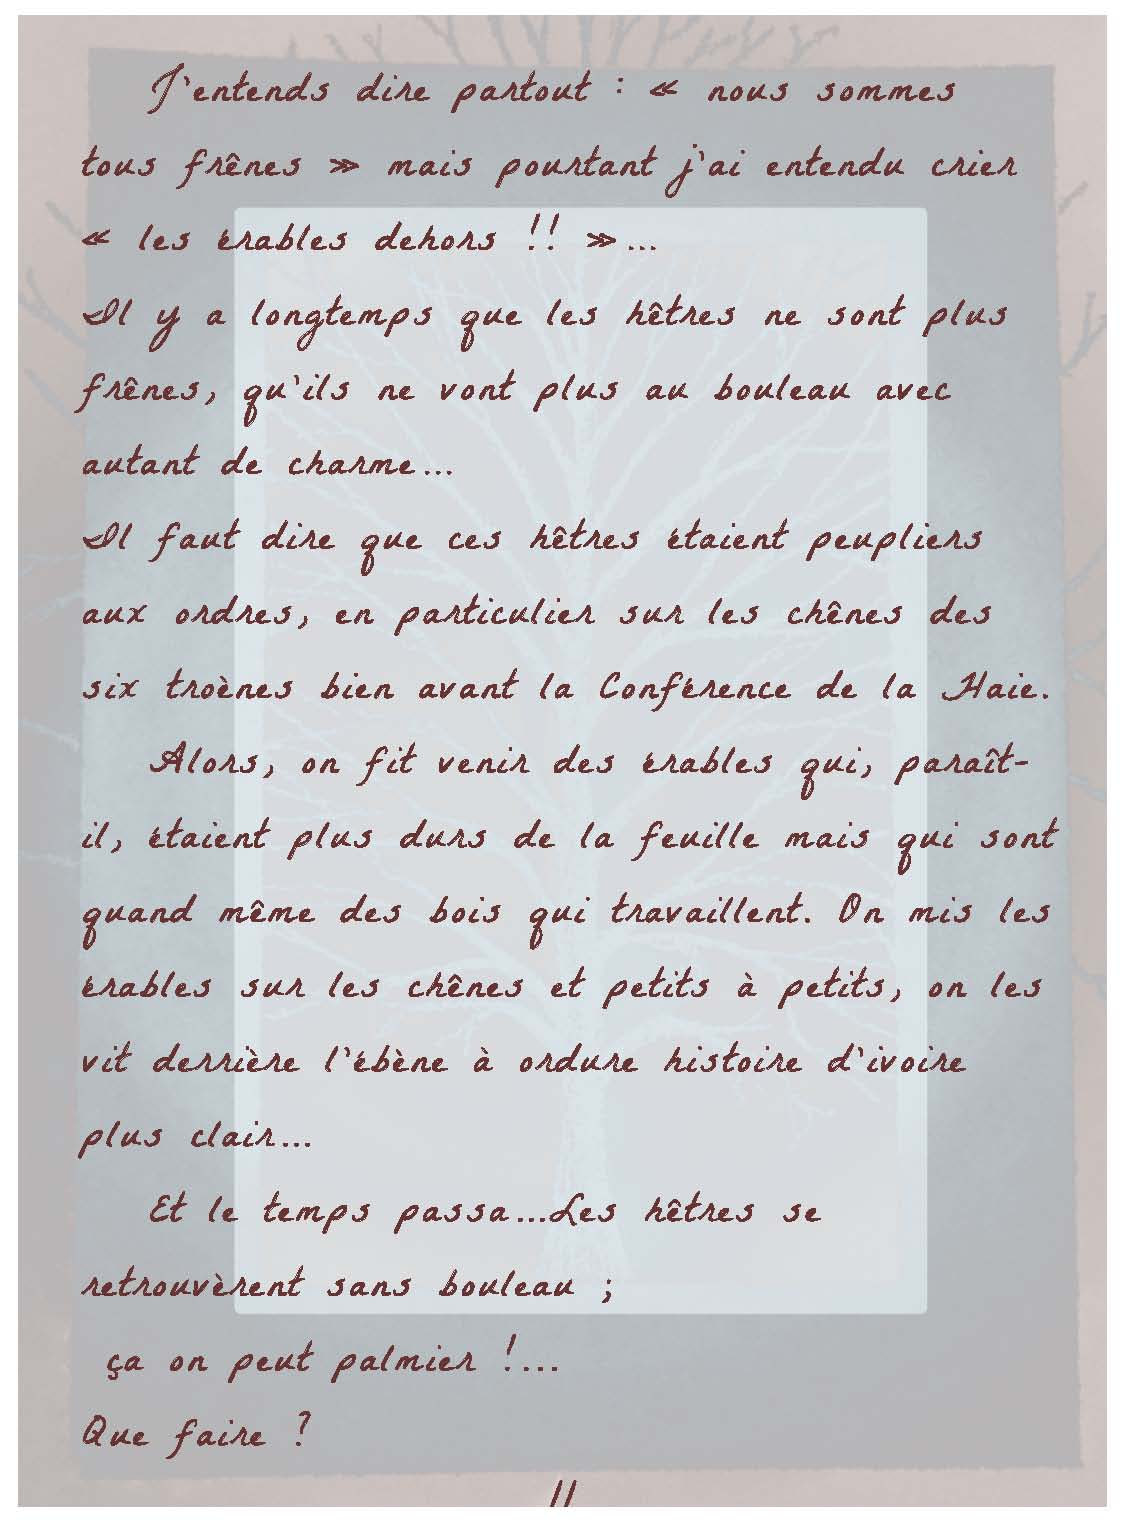 J'entends dire partout : « nous sommes
tous frênes » mais pourtant j'ai entendu crier
« les érables dehors !! »...
Il y a longtemps que les hêtres ne sont plus
frênes, qu'ils ne vont plus au bouleau avec
autant de charme...
Il faut dire que ces hêtres étaient peupliers
aux ordres, en particulier sur les chênes des
six troènes bien avant la Conférence de la Haie.
Alors, on fit venir des érables qui, paraît-
il, étaient plus durs de la feuille mais qui sont
quand même des bois qui travaillent. On mis les
érables sur les chênes et petits à petits, on les
vit derrière l'ébène à ordure histoire d'ivoire
plus clair...
Et le temps passa...Les hêtres se
retrouvèrent sans bouleau ;
ça on peut palmier !...
Que faire ?
11